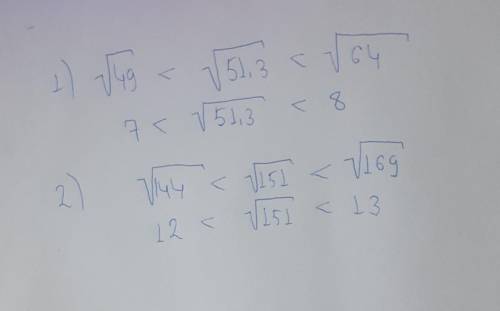 1) √49 < √51,3 < √64
7 < √51,3 < 8
2) √144 < √151 < √169
12 < √151 < 13